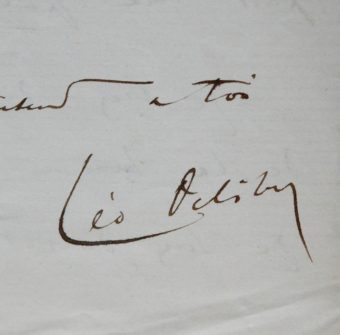 à toi
Léo Delibes